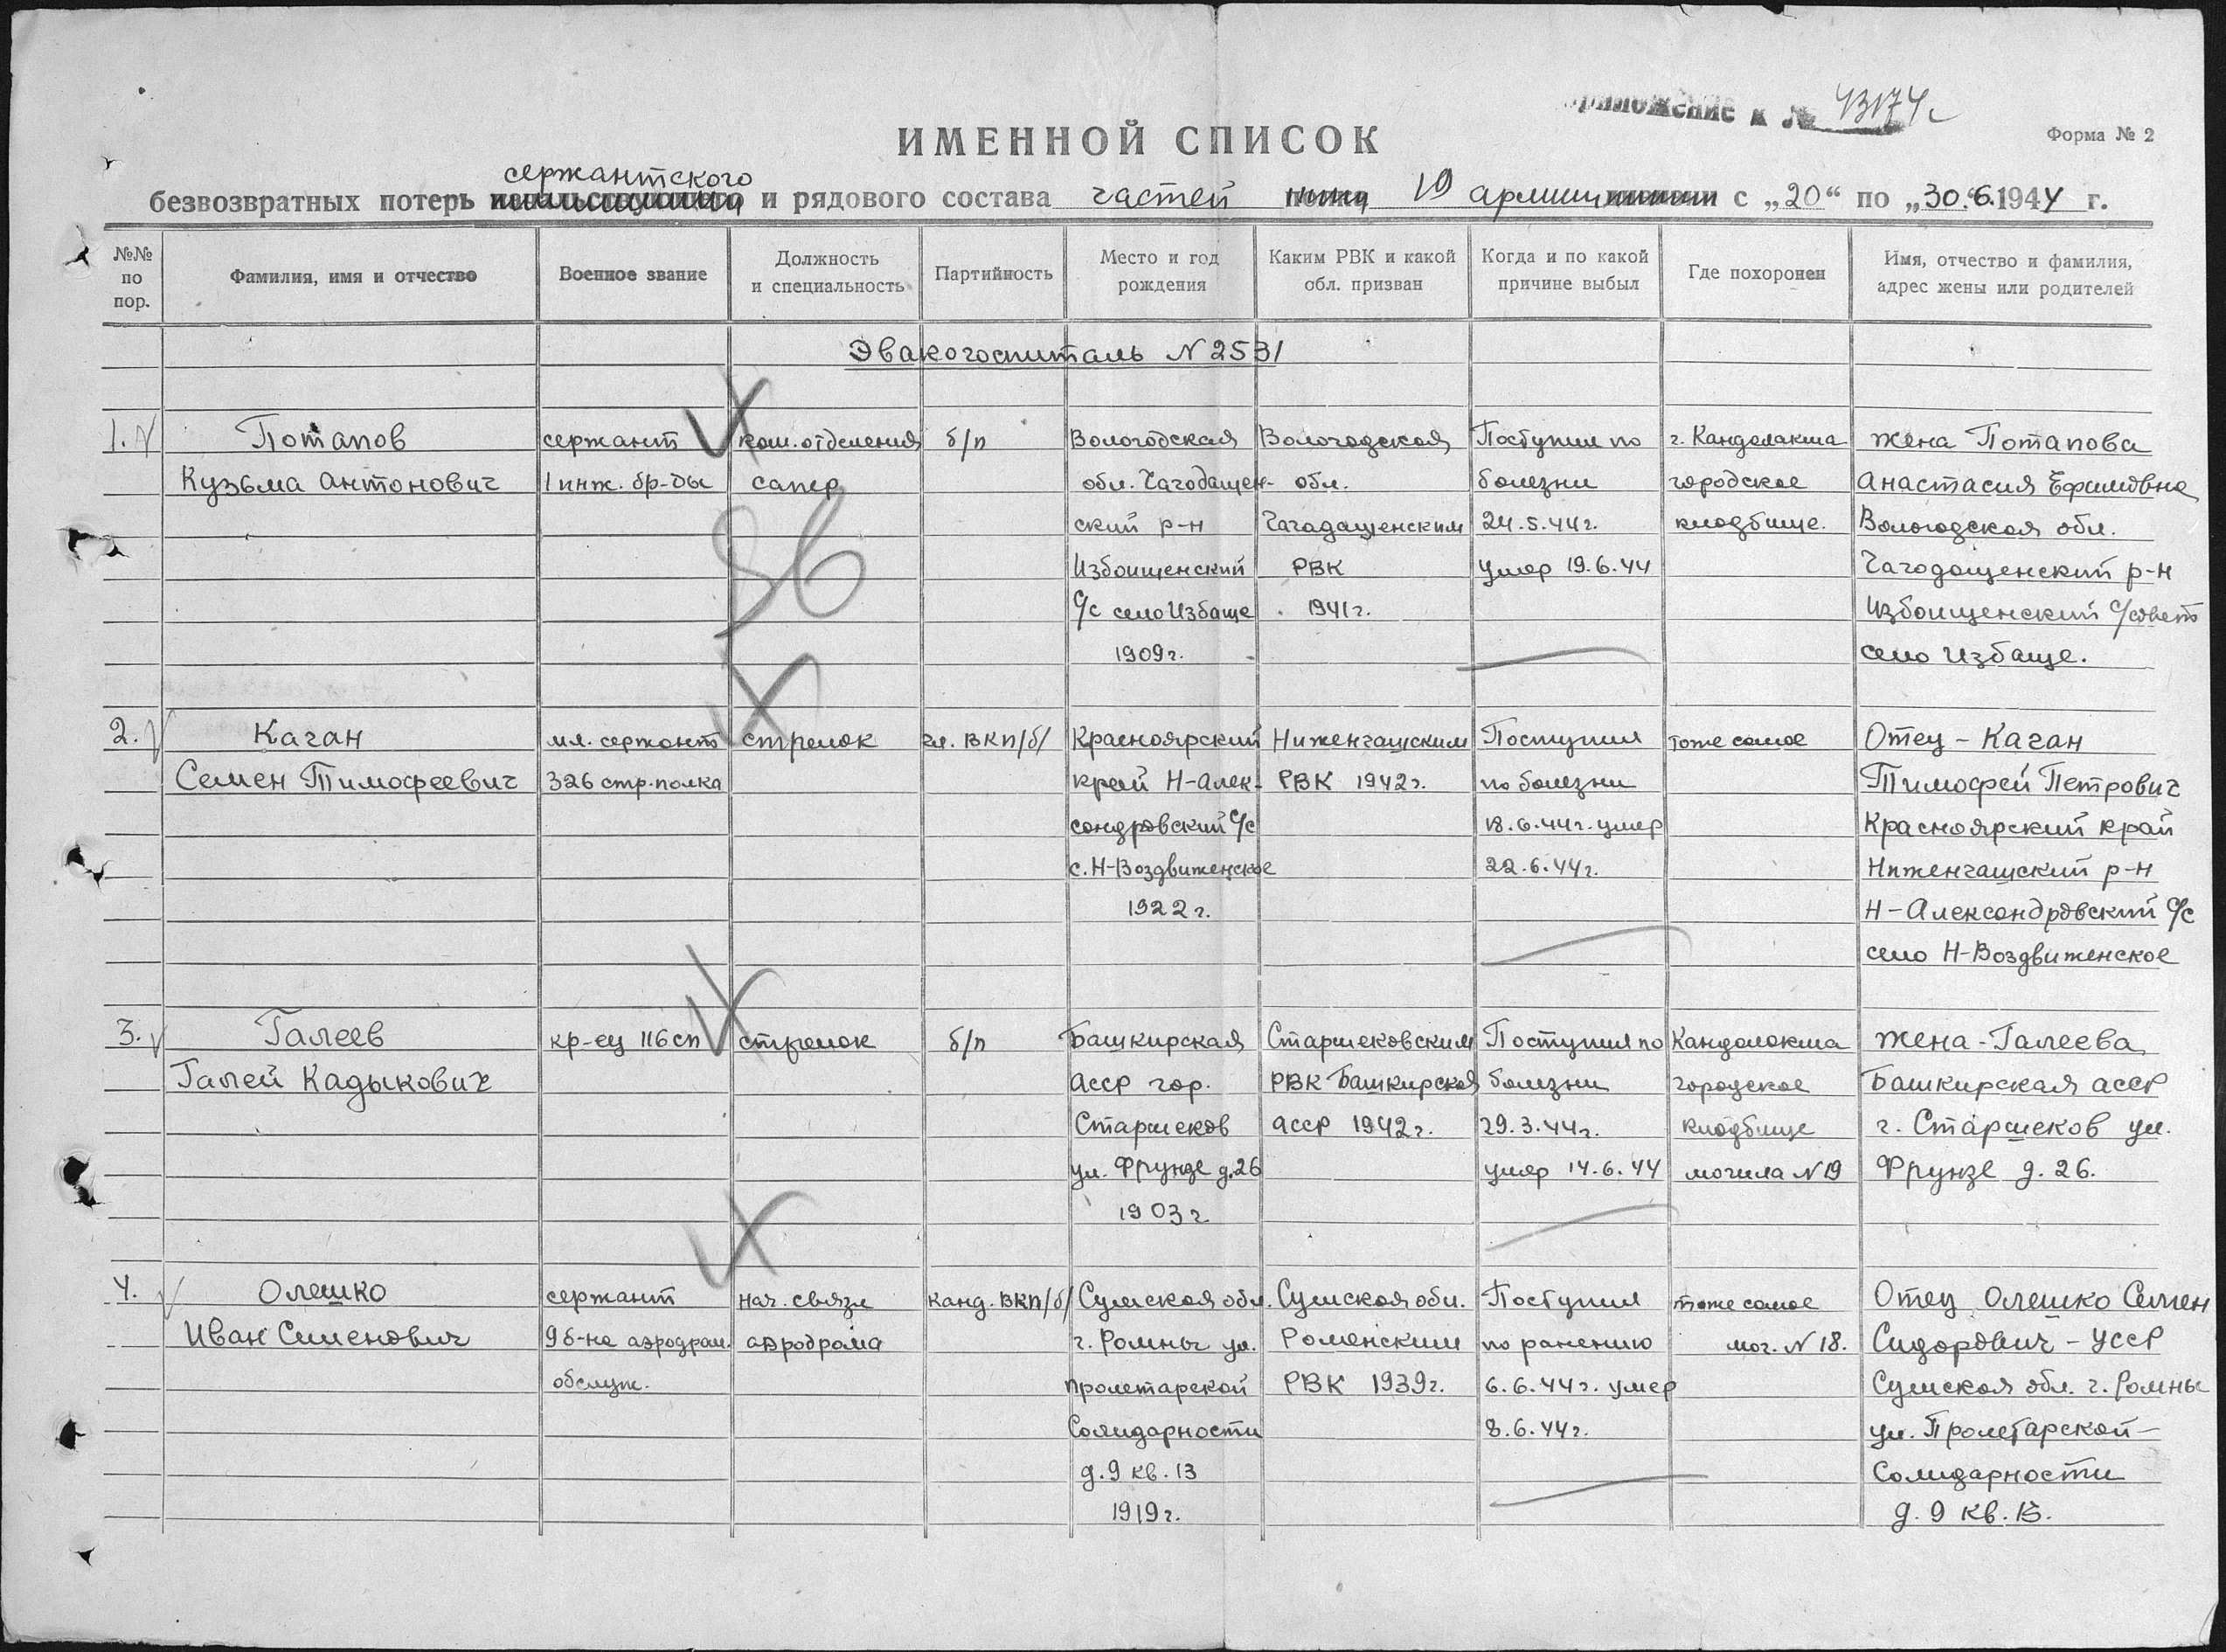 приложение к № 43174с
Форма № 2
ИМЕННОЙ СПИСОК
сержантского
безвозвратных потерь и рядового состава частей 19 армии с „20“ по „30.“6.1944 г.
№№ по пор.
Фамилия, имя и отчество
Военное звание
Должность и специальность
Партийность
Место и год рождения
Каким РВК и какой обл. призван
Когда и по какой причине выбыл
Где похоронен
Имя, отчество и фамилия, адрес жены или родителей
Эвакогоспиталь N 2531
1. Потапов сержант ком. отделения б/п Вологодская Вологодская Поступил по г. Кандалакша жена Потапова
Кузьма Антонович 1 инж. бр-ды сапер обл. Чагодащен- обл. болезни городское Анастасия Ефимовна
ский р-н Чагадащенским 24.5.44г. кладбище. Вологодская обл.
Избоищенский РВК умер 19.6.44 Чагодащенский р-н
с/с село Избаще 1941г. Избоищенский с/совет
1909г. село Избаще.
36
2. Каган мл. сержант стрелок чл. ВКП/б/ Красноярский Ниженгашским Поступил тоже самое Отец - Каган
Семен Тимофеевич 326 стр. полка край Н-Алек- РВК 1942г. по болезни Тимофей Петрович
сандровский с/с 18.6.44г. умер Красноярский край
с. Н-Воздвиженское 22.6.44г. Ниженгашский р-н
1922г. Н-Александровский с/с
село Н-Воздвиженское
3. Галеев кр-ец 116 сп стрелок б/п Башкирская Старшековским Поступил по Кандалакша жена - Галеева
Галей Кадыкович АССР гор. РВК Башкирская болезни городское Башкирская АССР
Старшеков АССР 1942г. 29.3.44г. кладбище г. Старшеков ул.
ул. Фрунзе д.26 умер 14.6.44 могила N 19 Фрунзе д. 26.
1903г
4. Олешко сержант нач. связи канд. ВКП/б/ Сумская обл. Сумская обл. Поступил тоже самое Отец Олешко Семен
Иван Семенович 9 б-на аэродром. аэродрома г. Ромны ул. Роменским по ранению мог. N 18. Сидорович - УССР
обслуж. пролетарской РВК 1939г. 6.6.44г. умер Сумская обл. г. Ромны
Солидарности 8.6.44г. ул. Пролетарской -
д. 9 кв. 13 Солидарности
1919г. д. 9 кв. 13.